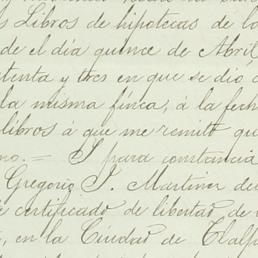 Libros de hipotecas de lo
de el dia quince de Abril
tenta y tres en que se dió
la misma finca, á la fech
libros á que me remito qu
no. = Y para constancia
Gregorio J. Martinez de
certificado de libertad, de
en la Ciudad de Tlalp